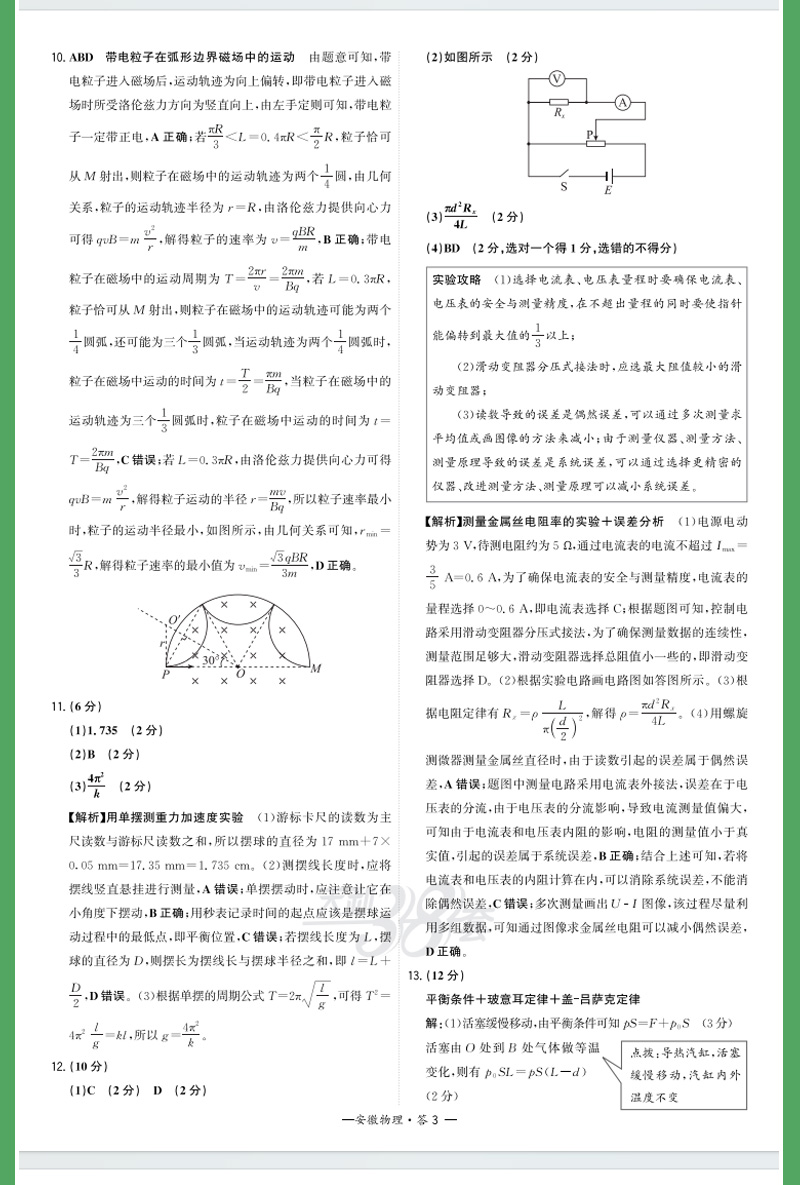 10. ABD 带电粒子在弧形边界磁场中的运动 由题意可知,带
电粒子进入磁场后,运动轨迹为向上偏转,即带电粒子进入磁
场时所受洛伦兹力方向为竖直向上,由左手定则可知,带电粒
子一定带正电,A 正确;若πR/3<L=0.4πR<π/2R,粒子恰可
从 M 射出,则粒子在磁场中的运动轨迹为两个1/4圆,由几何
关系,粒子的运动轨迹半径为 r=R,由洛伦兹力提供向心力
可得 qvB=m v²/r,解得粒子的速率为 v=qBR/m,B 正确;带电
粒子在磁场中的运动周期为 T=2πr/v=2πm/Bq,若 L=0.3πR,
粒子恰可从 M 射出,则粒子在磁场中的运动轨迹可能为两个
1/4圆弧,还可能为三个1/3圆弧,当运动轨迹为两个1/4圆弧时,
粒子在磁场中运动的时间为 t=T/2=πm/Bq,当粒子在磁场中的
运动轨迹为三个1/3圆弧时,粒子在磁场中运动的时间为 t=
T=2πm/Bq,C 错误;若 L=0.3πR,由洛伦兹力提供向心力可得
qvB=m v²/r,解得粒子运动的半径 r=mv/Bq,所以粒子速率最小
时,粒子的运动半径最小,如图所示,由几何关系可知,rmin=
√3/3R,解得粒子速率的最小值为 vmin=√3qBR/3m,D 正确。
O′
r
30°
P
O
M
11. (6 分)
(1)1.735 (2 分)
(2)B (2 分)
(3)4π²/k (2 分)
【解析】用单摆测重力加速度实验 (1)游标卡尺的读数为主
尺读数与游标尺读数之和,所以摆球的直径为 17 mm+7×
0.05 mm=17.35 mm=1.735 cm。(2)测摆线长度时,应将
摆线竖直悬挂进行测量,A 错误;单摆摆动时,应注意让它在
小角度下摆动,B 正确;用秒表记录时间的起点应该是摆球运
动过程中的最低点,即平衡位置,C 错误;若摆线长度为 L,摆
球的直径为 D,则摆长为摆线长与摆球半径之和,即 l=L+
D/2,D 错误。(3)根据单摆的周期公式 T=2π√(l/g),可得 T²=
4π² l/g=kl,所以 g=4π²/k。
12. (10 分)
(1)C (2 分) D (2 分)
(2)如图所示 (2 分)
V
Rx
A
P
S
E
(3)πd²Rx/4L (2 分)
(4)BD (2 分,选对一个得 1 分,选错的不得分)
实验攻略 (1)选择电流表、电压表量程时要确保电流表、
电压表的安全与测量精度,在不超出量程的同时要使指针
能偏转到最大值的1/3以上;
(2)滑动变阻器分压式接法时,应选最大阻值较小的滑
动变阻器;
(3)读数导致的误差是偶然误差,可以通过多次测量求
平均值或画图像的方法来减小;由于测量仪器、测量方法、
测量原理导致的误差是系统误差,可以通过选择更精密的
仪器、改进测量方法、测量原理可以减小系统误差。
【解析】测量金属丝电阻率的实验+误差分析 (1)电源电动
势为 3 V,待测电阻约为 5 Ω,通过电流表的电流不超过 Imax=
3/5 A=0.6 A,为了确保电流表的安全与测量精度,电流表的
量程选择 0~0.6 A,即电流表选择 C;根据题图可知,控制电
路采用滑动变阻器分压式接法,为了确保测量数据的连续性,
测量范围足够大,滑动变阻器选择总阻值小一些的,即滑动变
阻器选择 D。(2)根据实验电路画电路图如答图所示。(3)根
据电阻定律有 Rx=ρ L/π(d/2)²,解得 ρ=πd²Rx/4L。(4)用螺旋
测微器测量金属丝直径时,由于读数引起的误差属于偶然误
差,A 错误;题图中测量电路采用电流表外接法,误差在于电
压表的分流,由于电压表的分流影响,导致电流测量值偏大,
可知由于电流表和电压表内阻的影响,电阻的测量值小于真
实值,引起的误差属于系统误差,B 正确;结合上述可知,若将
电流表和电压表的内阻计算在内,可以消除系统误差,不能消
除偶然误差,C 错误;多次测量画出 U-I 图像,该过程尽量利
用多组数据,可知通过图像求金属丝电阻可以减小偶然误差,
D 正确。
13. (12 分)
平衡条件+玻意耳定律+盖-吕萨克定律
解:(1)活塞缓慢移动,由平衡条件可知 pS=F+p₀S (3 分)
活塞由 O 处到 B 处气体做等温
变化,则有 p₀SL=pS(L-d)
(2 分)
点拨:导热汽缸,活塞
缓慢移动,汽缸内外
温度不变
—安徽物理·答 3—